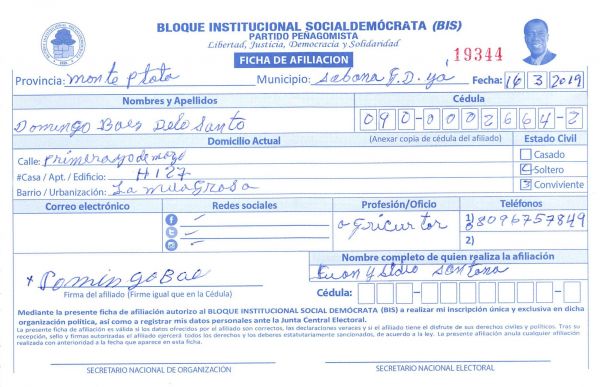 BLOQUE INSTITUCIONAL SOCIALDEMÓCRATA (BIS)
PARTIDO PEÑAGOMISTA
Libertad, Justicia, Democracia y Solidaridad
FICHA DE AFILIACION
19344
Provincia: Monte Plata Municipio: Sabana G.D. ya Fecha: 16 3 2019
Nombres y Apellidos Cédula
Domingo Baez Delo Santo 090-0002664-2
Domicilio Actual (Anexar copia de cédula del afiliado) Estado Civil
Calle: Primerayodemayo Casado
#Casa / Apt. / Edificio: H127 Soltero
Barrio / Urbanización: La milagrosa Conviviente
Correo electrónico Redes sociales Profesión/Oficio Teléfonos
agricurtor 1) 8096757849
2)
Nombre completo de quien realiza la afiliación
Domingo Bae Santana
Firma del afiliado (Firme igual que en la Cédula) Cédula:
Mediante la presente ficha de afiliación autorizo al BLOQUE INSTITUCIONAL SOCIAL DEMÓCRATA (BIS) a realizar mi inscripción única y exclusiva en dicha
organización política, así como a registrar mis datos personales ante la Junta Central Electoral.
La presente ficha de afiliación es válida si los datos ofrecidos por el afiliado son correctos, las declaraciones veraces y si el afiliado tiene el disfrute de sus derechos civiles y políticos. Tras su
recepción, sello y firmas autorizadas el afiliado ejercerá todos los derechos y los deberes estatutariamente sancionados, de acuerdo a la ley. La presente afiliación anula cualquier afiliación
realizada con anterioridad a la fecha que aparece en esta ficha.
SECRETARIO NACIONAL DE ORGANIZACIÓN SECRETARIO NACIONAL ELECTORAL